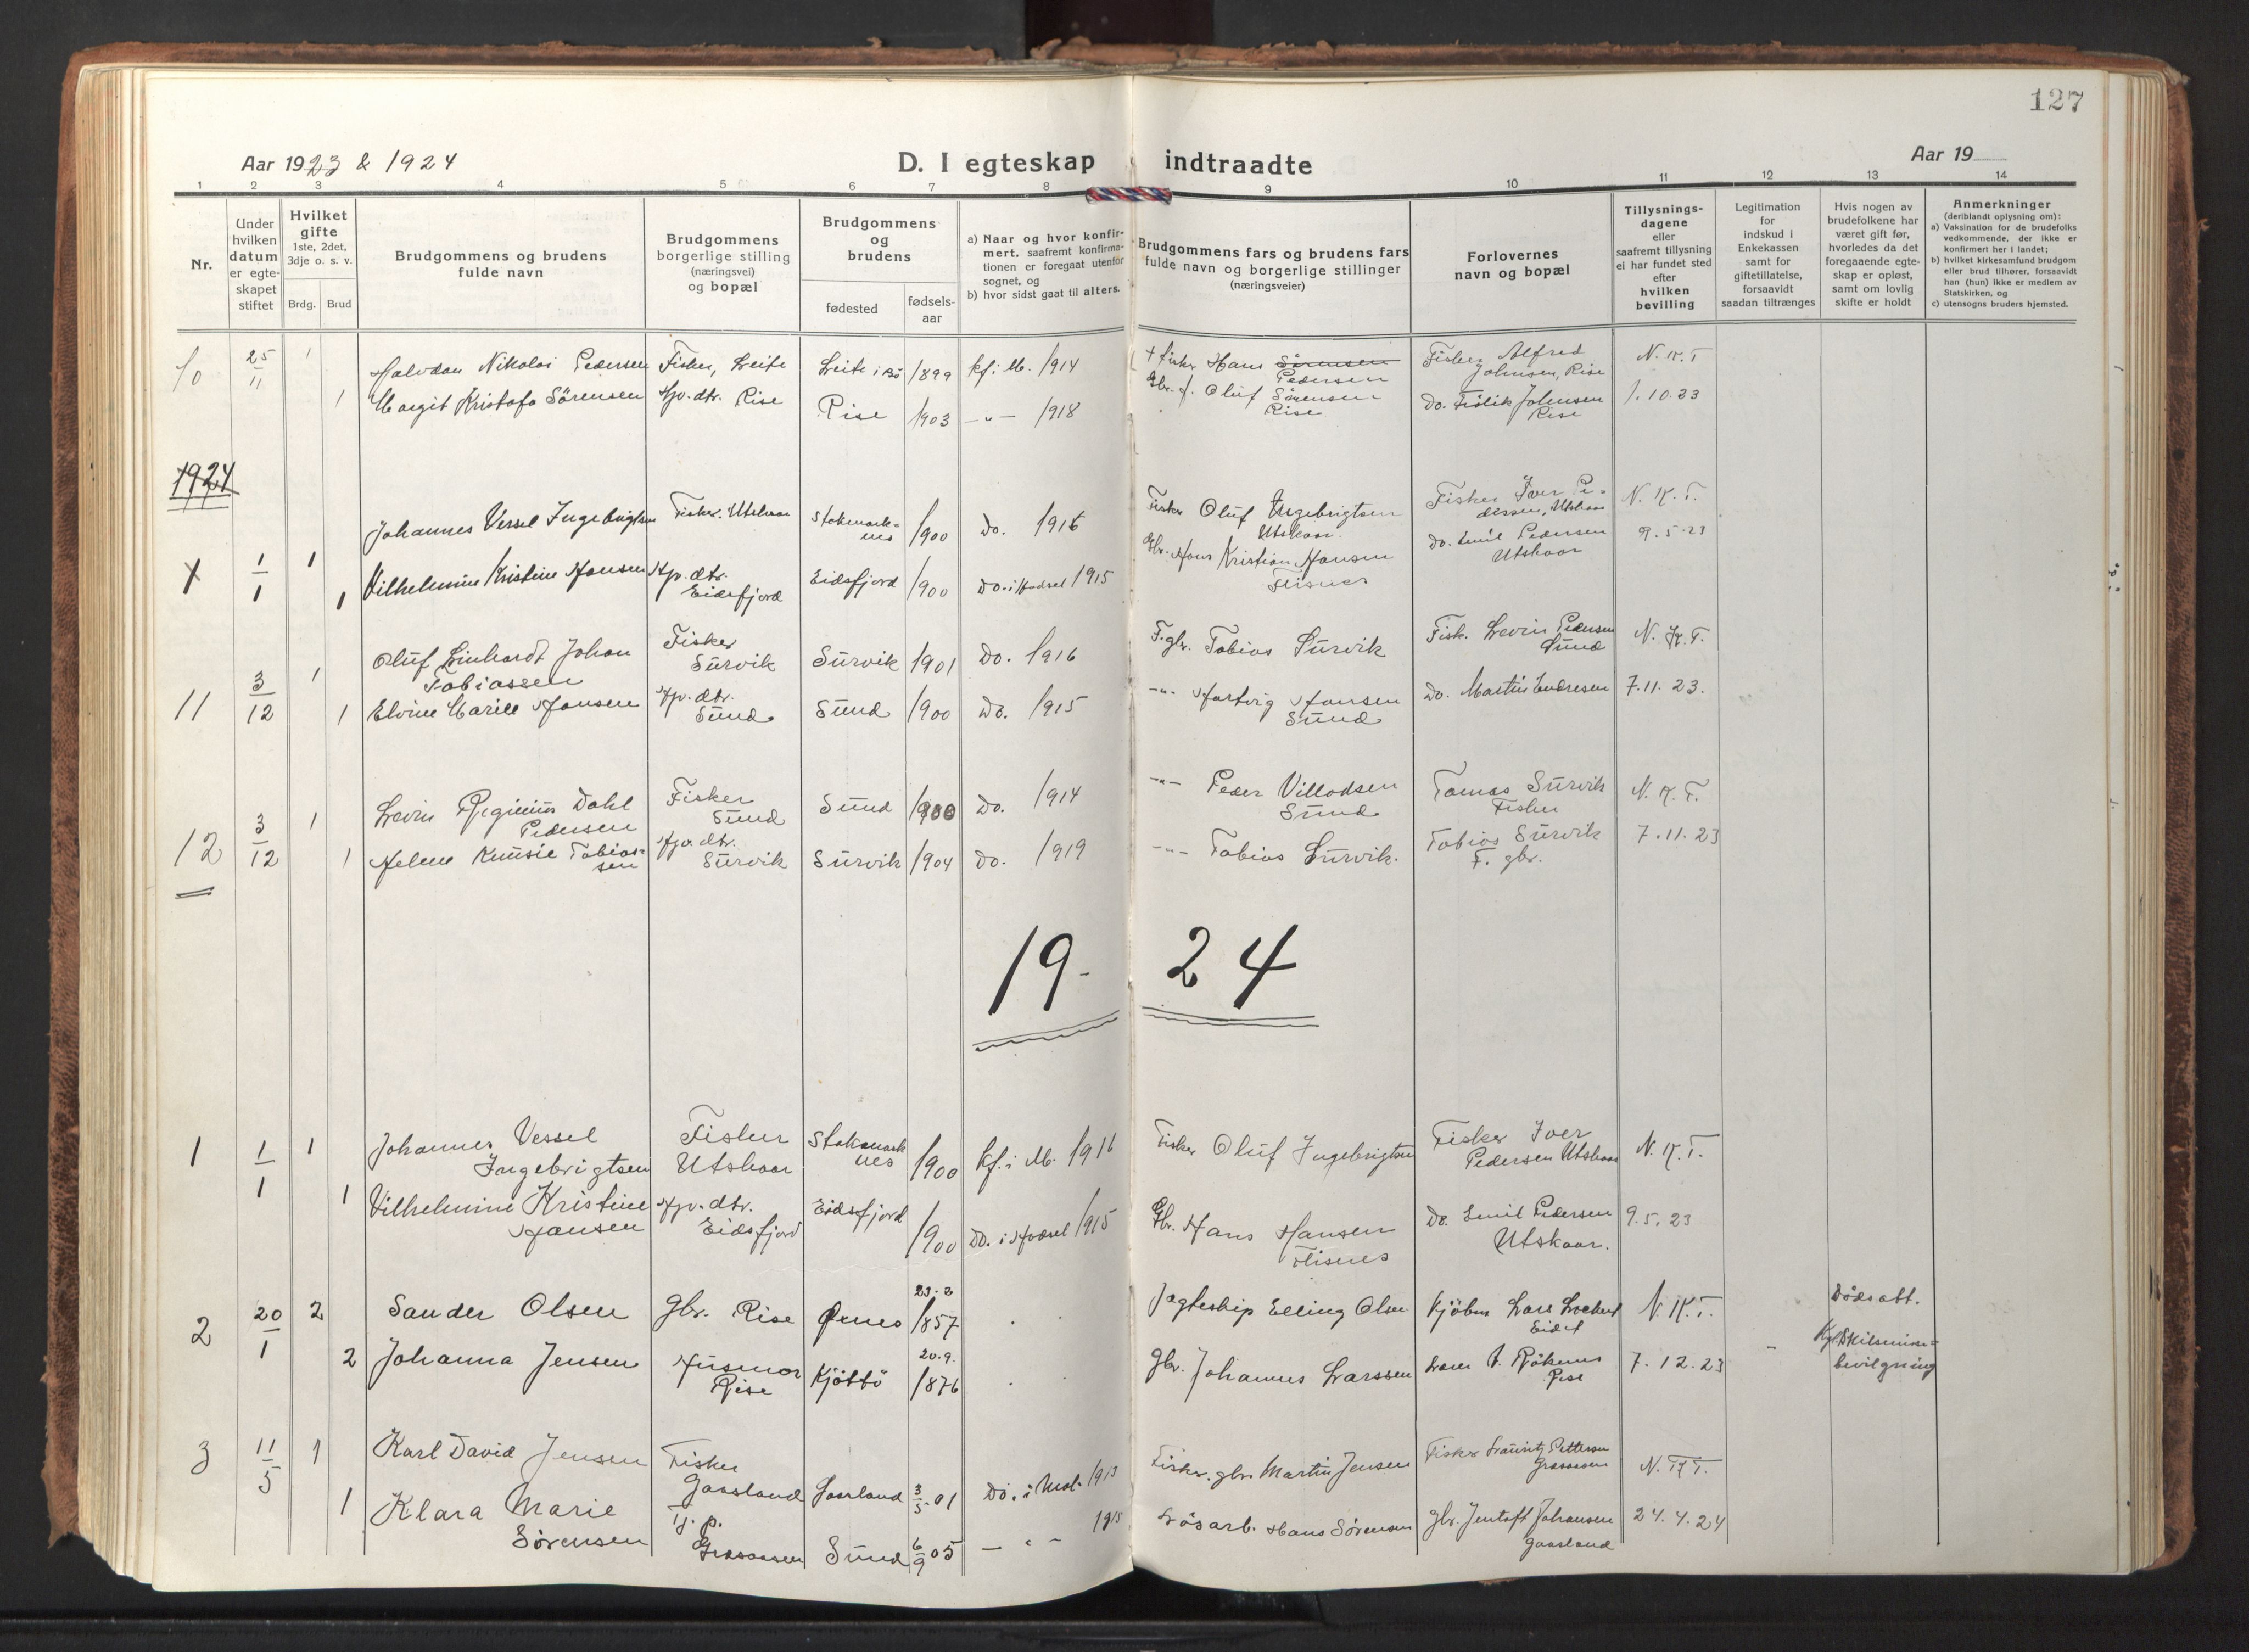 127
Aar 1923 & 1924
D. I egteskap indtraadte
Aar 19
1 2 3 4 5 6 7 8 9 10 11 12 13 14
Nr.
Under
hvilken
datum
er egte-
skapet
stiftet
Hvilket
gifte
1ste, 2det,
3dje o. s. v.
Brdg. Brud
Brudgommens og brudens
fulde navn
Brudgommens
borgerlige stilling
(næringsvei)
og bopæl
Brudgommens
og
brudens
fødested
fødsels-
aar
a) Naar og hvor konfir-
mert, saafremt konfirma-
tionen er foregaat utenfor
sognet, og
b) hvor sidst gaat til alters.
Brudgommens fars og brudens fars
fulde navn og borgerlige stillinger
(næringsveier)
Forlovernes
navn og bopæl
Tillysnings-
dagene
eller
saafremt tillysning
ei har fundet sted
efter
hvilken
bevilling
Legitimation
for
indskud i
Enkekassen
samt for
giftetillatelse,
forsaavidt
saadan tiltrænges
Hvis nogen av
brudefolkene har
været gift før,
hvorledes da det
foregaaende egte-
skap er opløst,
samt om lovlig
skifte er holdt
Anmerkninger
(deriblandt oplysning om):
a) Vaksination for de brudefolks
vedkommende, der ikke er
konfirmert her i landet;
b) hvilket kirkesamfund brudgom
eller brud tilhører, forsaavidt
han (hun) ikke er medlem av
Statskirken, og
c) utensogns bruders hjemsted.
10 25/11 1 Halvdan Nikolai Pedersen Fisker, Leite Leite i Bö 1899 kf. i M. 1914 + fisker Hans Sörensen Fisker Alfred N. K. T
Pedersen Johnsen, Rise
1 Margit Kristofa Sörensen Hjv. dtr. Rise Rise 1903 -"- 1918 Gbr. f. Oluf Sörensen Do. Johnsen 1.10.23
Rise Rise
1924
Johannes Vessel Ingebrigtsen Fisker. Utskaar Stokmark- 1900 Do. 1916 Fisker Oluf Ingebrigtsen Fisker Iver Pe- N. K. T.
nes Utskaar. dersen, Utskaar
1/1 1 Gbr. Hans Kristian Hansen Do. Emil Pedersen 9.5.23
1 Vilhelmine Kristine Hansen Hjv. dtr. Eidsfjord 1900 Do. i Hadsel 1915 Flisnes Utskaar
Eidsfjord
Oluf Linhardt Johan Fisker Survik 1901 Do. 1916 F. gbr. Tobias Survik Fisk. Levin Pedersen N. K. T.
Tobiassen Survik Sund
11 3/12 1
1 Elvine Marie Hansen Hjv. dtr. Sund 1900 Do. 1915 -"- Hartvig Hansen Do. Martin Endresen 7.11.23.
Sund Sund
Levin Reginius Dahl Fisker Sund 1900 Do. 1914 -"- Peder Villadsen Tomas Survik N. K. T.
Pedersen Sund Sund Fisker
12 3/12 1
1 Helene Knusie Tobias- Hjv. dtr. Survik 1904 Do. 1919 -"- Tobias Survik. Tobias Survik 7.11.23
sen Survik F. gbr.
19- 24
1 1/1 1 Johannes Vessel Fisker Stokmark 1900 kf. i M. 1916 Fisker Oluf Ingebrigtsen Fisker Iver N. K. T.
Ingebrigtsen Utskaar nes Pedersen Utskaar
1 Vilhelmine Kristine Hjv. dtr. Eidsfjord 1900 Do. i Hadsel 1915 Gbr. Hans Hansen Do. Emil Pedersen 9.5.23
Hansen Eidsfjord Flisnes Utskaar.
2 20/1 2 Sander Olsen Gbr. Rise 1857 Jægteskip Elling Olsen Kjöbm Lars Lockert N. K. T. Dödsatt.
Eidet
2 Johanna Jensen Husmor Kjöttö 20.9. 1876 Gbr. Johannes Larssen 7.12.23 Kgl. Skilsmisse-
Rise Rise bevilgning
3 11/5 1 Karl David Jensen Fisker Gaasland 3/5 01 Do. i Mal. 1913 Fisker. gbr. Martin Jensen Fisker Lauritz Pettersen N. K. T.
Gaasland
1 Klara Marie Hj. p. Sund 6/9 05 - " - 1915 Lösarb. Hans Sörensen Gbr. Jentoft Johansen 24.4.24
Sörensen Gaasland